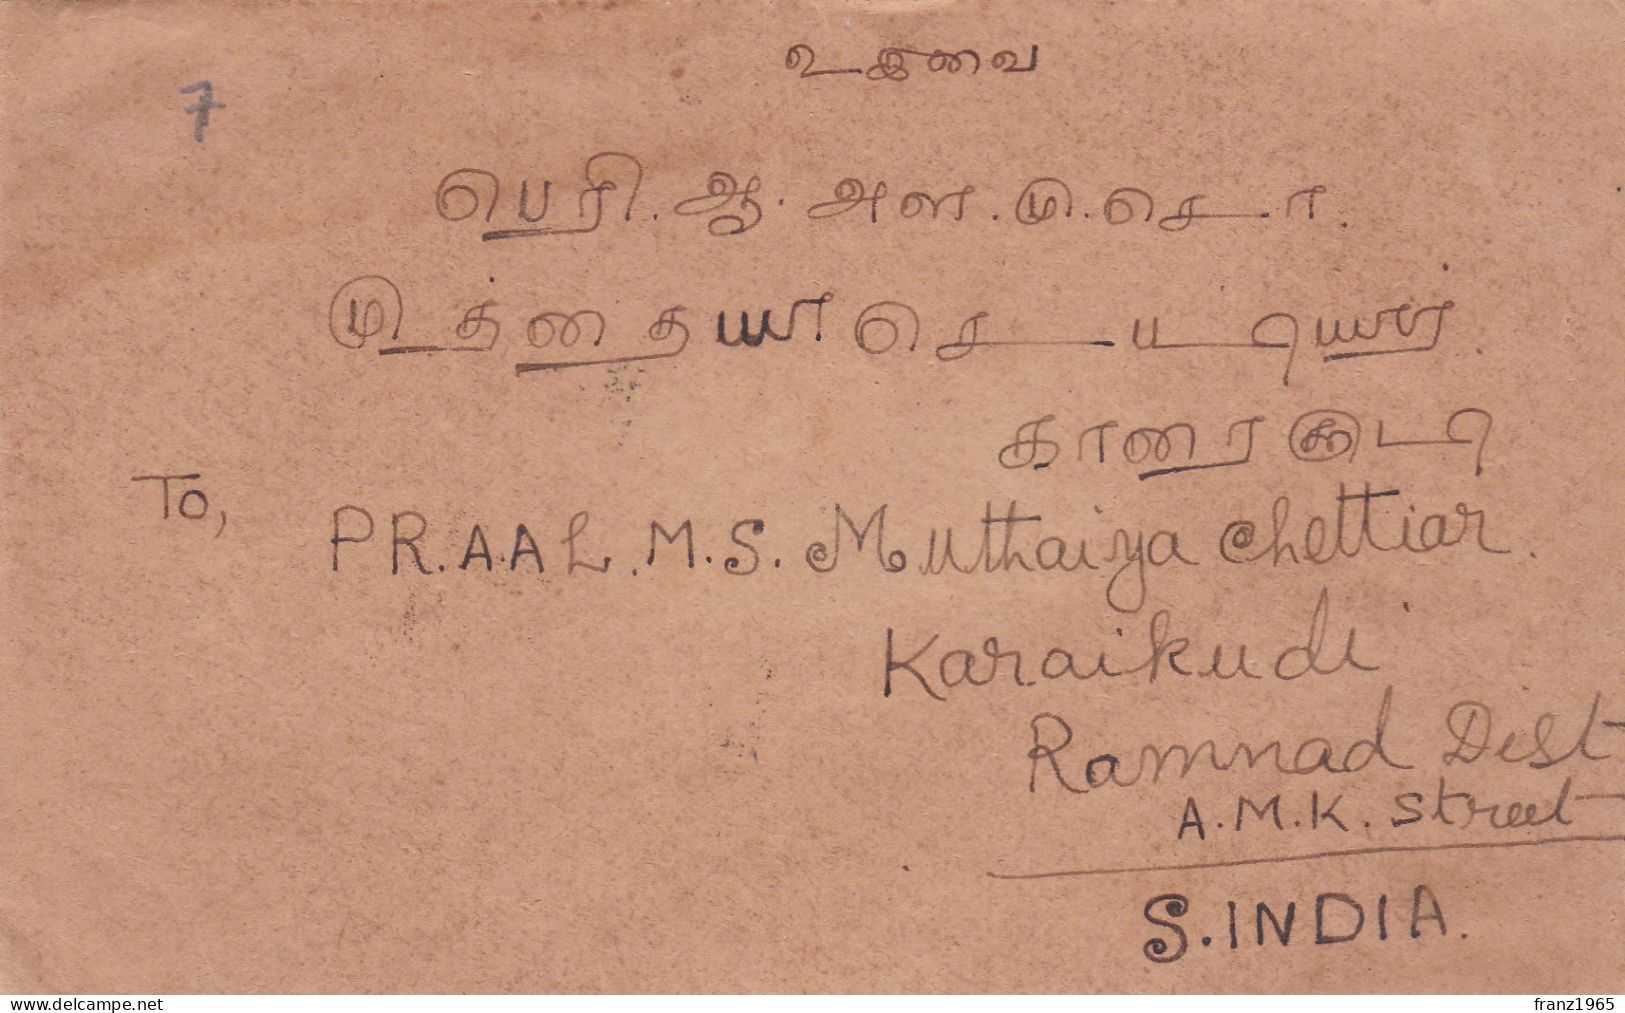 7
பெரி. ஆ. அள. மு. செ.
PR.A.AL.M.S. Muthaiya Chettiar.
காரைகுடி
To,
Karaikudi
Ramnad Dist
A.M.K. Street
S.INDIA.
www.delcampe.net
franz1965